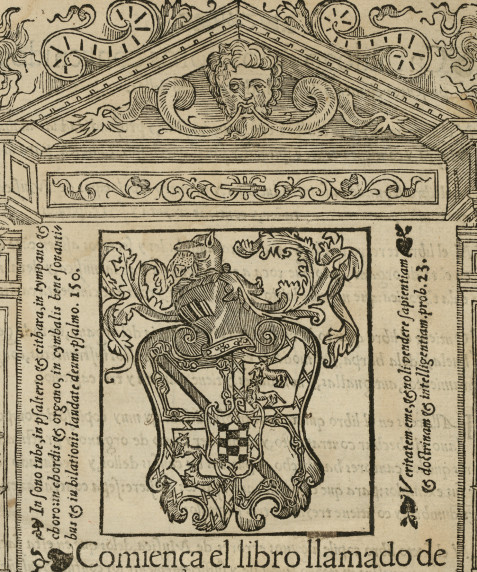 In sono tube, in psalterio & cithara, in tympano &
choro: in chordis & organo, in cymbalis bene sonantis
bus & iubilationis laudate deum, psalmo. 150.
Veritatem eme, & noli vendere sapientiam
& doctrinam & intelligentiam. prob. 23.
Comiença el libro llamado de